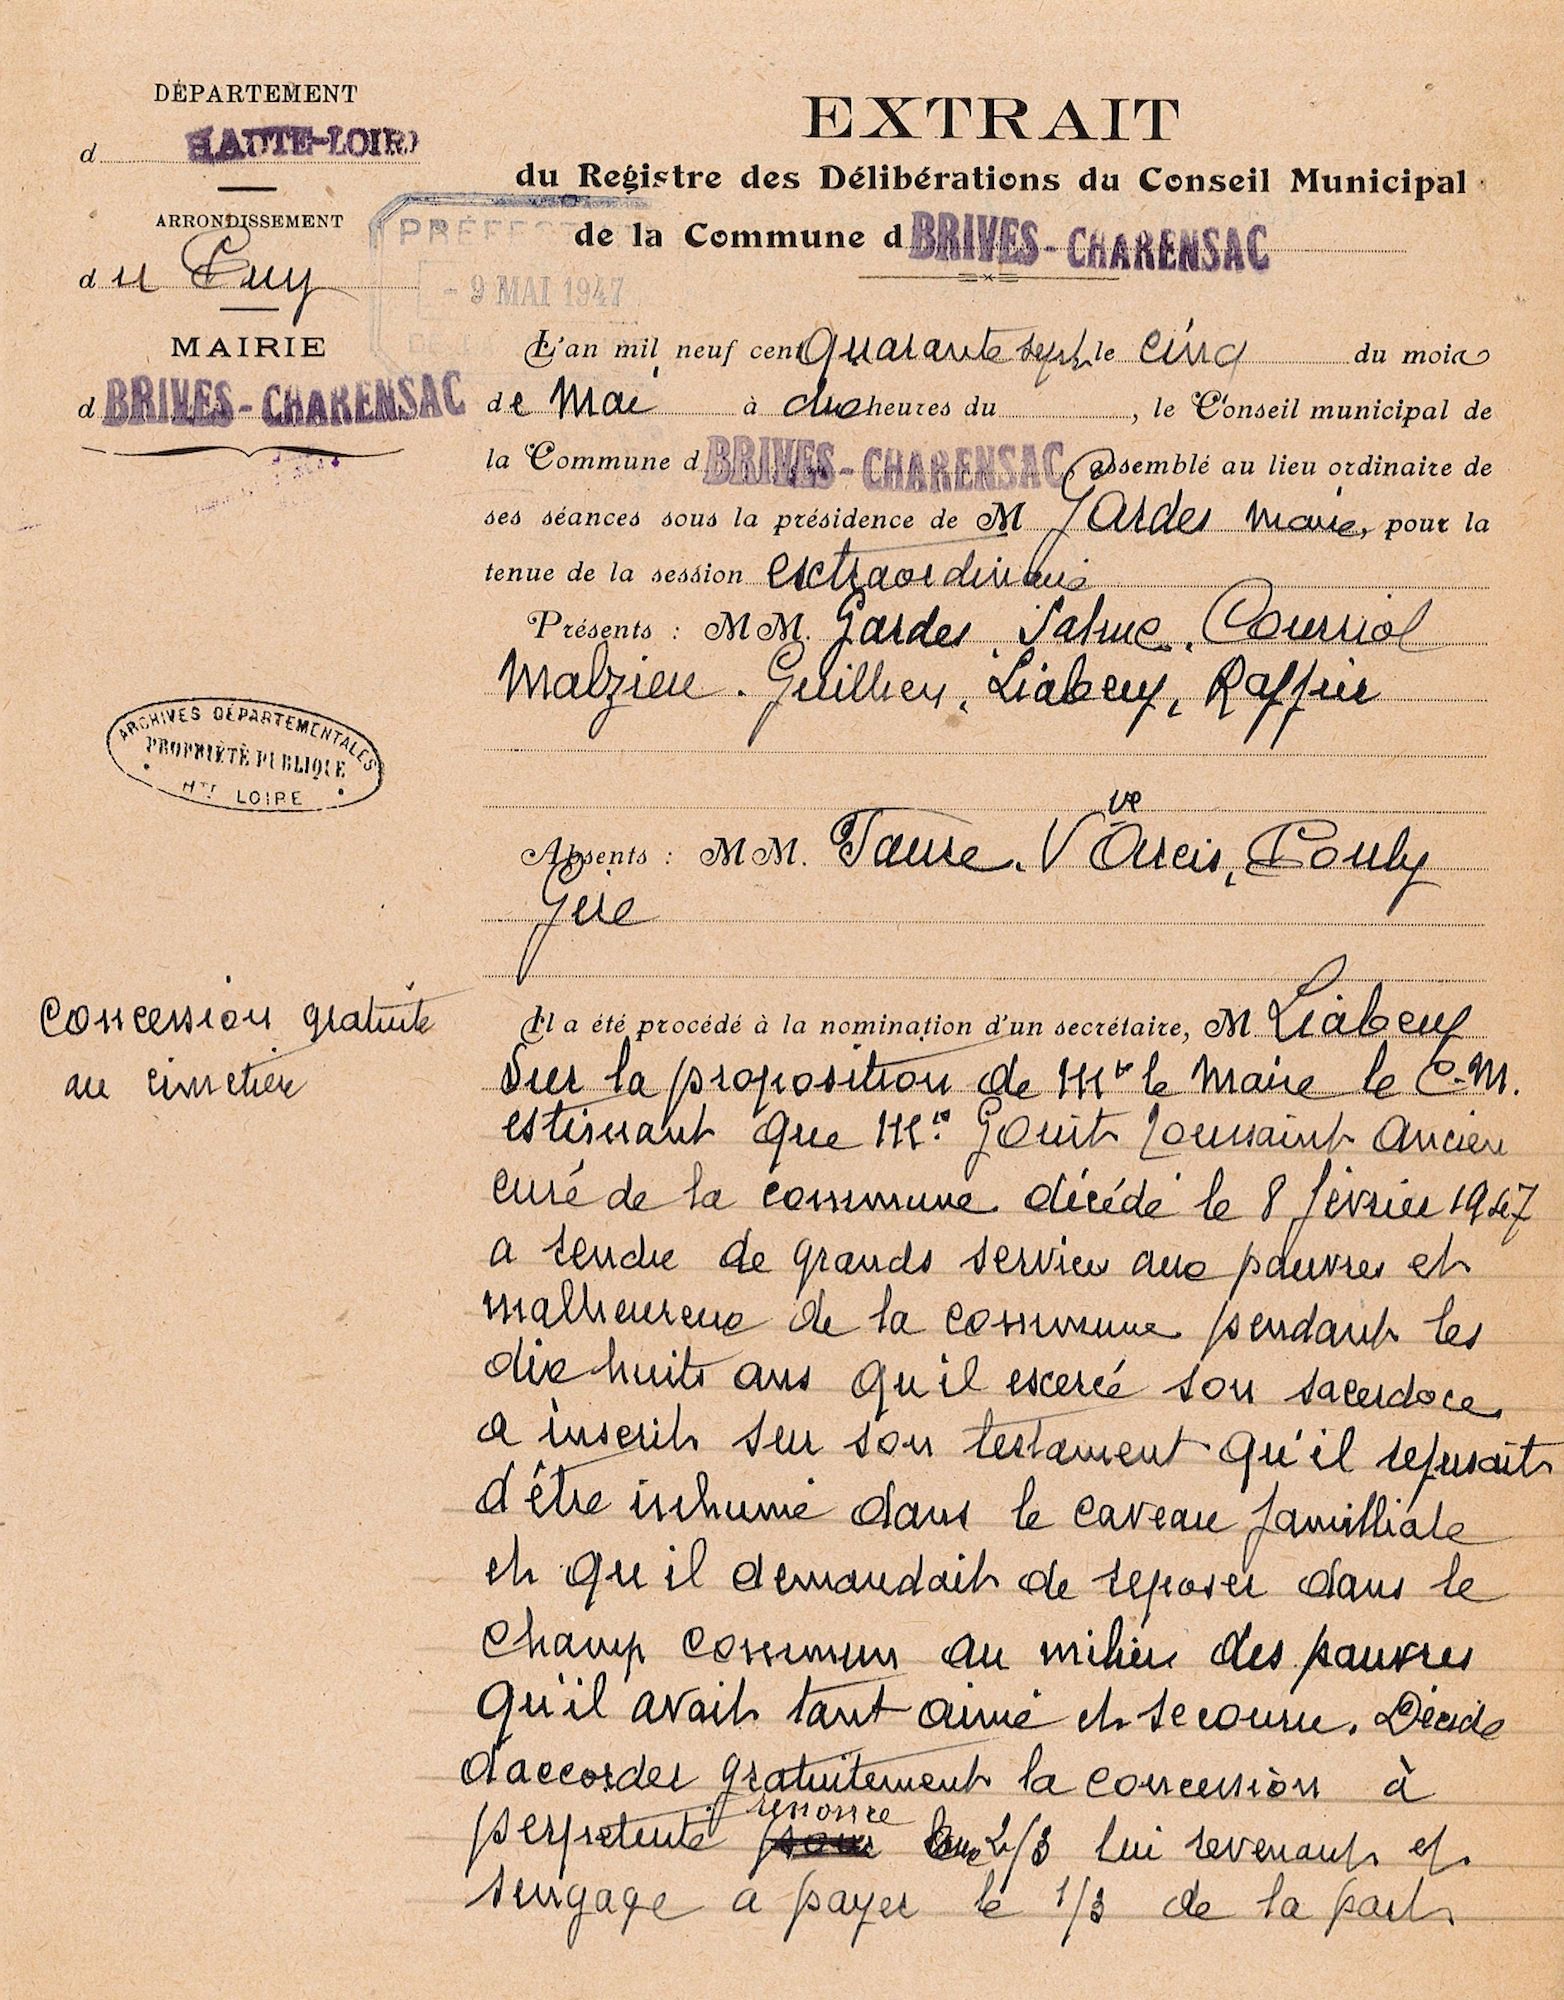 DÉPARTEMENT
d HAUTE-LOIRE
ARRONDISSEMENT
du Puy
MAIRIE
d BRIVES-CHARENSAC
PRÉFECT
- 9 MAI 1947
EXTRAIT
du Registre des Délibérations du Conseil Municipal
de la Commune d BRIVES-CHARENSAC
L'an mil neuf cent quarante sept le cinq du mois
de Mai à dix heures du , le Conseil municipal de
la Commune d BRIVES-CHARENSAC, assemblé au lieu ordinaire de
ses séances sous la présidence de M Gardes maire, pour la
tenue de la session extraordinaire
Présents : MM. Gardes, Sahuc, Courriol
Malzieu. Guilhen, Liabeuf, Raffier
ARCHIVES DÉPARTEMENTALES
PROPRIÉTÉ PUBLIQUE
Hte LOIRE
Absents : MM. Faure, Vve Arcis, Pouly
Gire
concession gratuite
au cimetière
Il a été procédé à la nomination d'un secrétaire, M Liabeuf
Sur la proposition de Mr le Maire le C.M.
estimant que Mr Gouit Toussaint ancien
curé de la commune décédé le 8 février 1947
a rendu de grands service aux pauvres et
malheureux de la commune pendant les
dix huits ans qu'il excercé son sacerdoce
a inscrit sur son testament qu'il refusait
d'être inhumé dans le caveau familliale
et qu'il demandait de reposer dans le
champ commun au milieu des pauvres
qu'il avait tant aimé et secouru. Décide
d'accorder gratuitement la concession à
perpetuité renonce aux 2/3 lui revenant et
s'engage a payer le 1/3 de la part